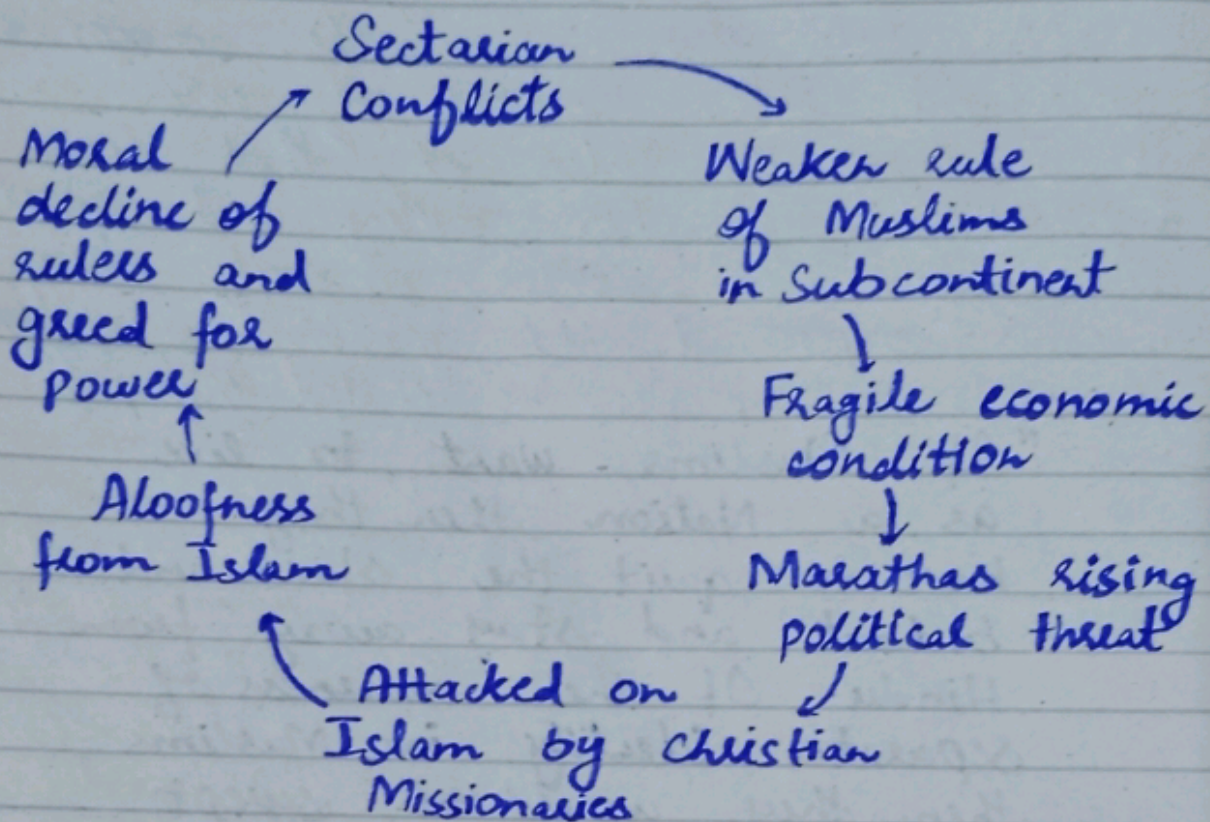 Sectarian
Conflicts
Weaker rule
of Muslims
in Subcontinent
Fragile economic
condition
Marathas rising
political threat
Attacked on
Islam by Christian
Missionaries
Aloofness
from Islam
Moral
decline of
rulers and
greed for
power